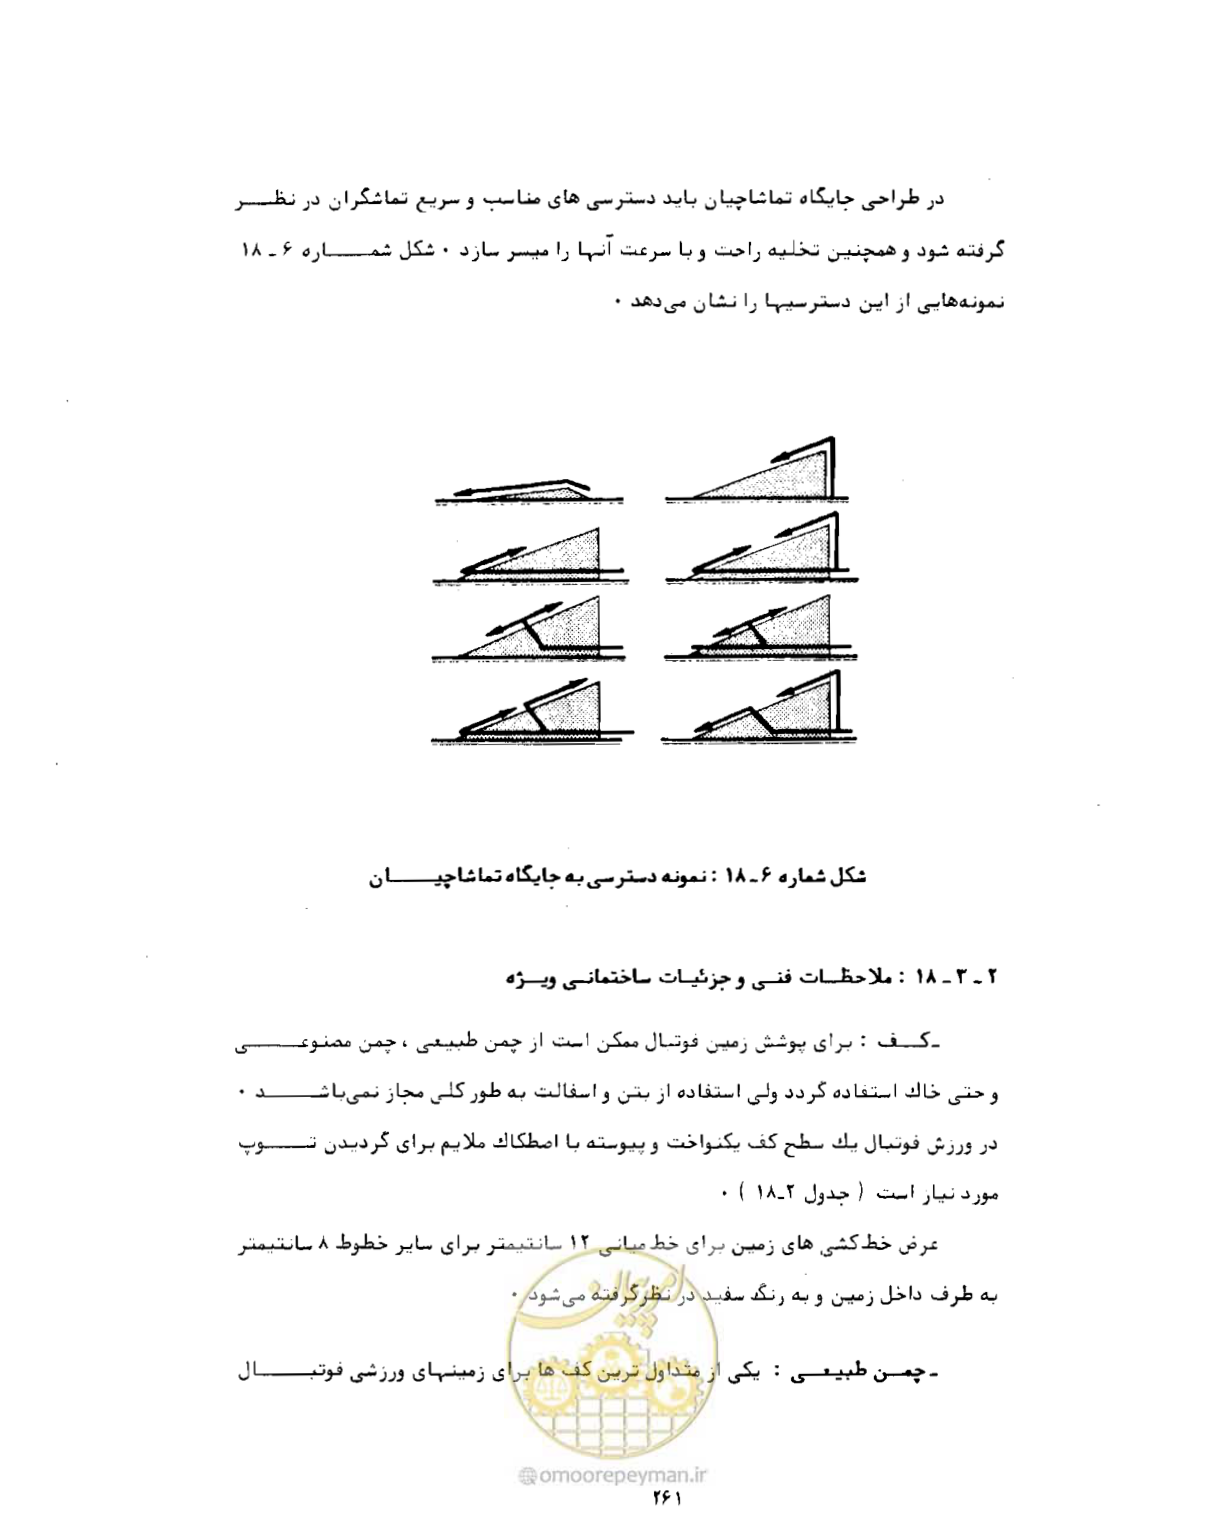 در طراحی جایگاه تماشاچیان باید دسترسی های مناسب و سریع تماشگران در نظــر
گرفته شود و همچنین تخلیه راحت و با سرعت آنها را میسر سازد ۰ شکل شمــاره ۶ ـ ۱۸
نمونه‌هایی از این دسترسیها را نشان می‌دهد ۰
شکل شماره ۶ـ۱۸ : نمونه دسترسی به جایگاه تماشاچیــان
۲ ـ ۳ ـ ۱۸ : ملاحظــات فنــی و جزئیـات ساختمانـی ویــژه
ـ کــف : برای پوشش زمین فوتبال ممکن است از چمن طبیعی ، چمن مصنوعــی
و حتی خاك استفاده گردد ولی استفاده از بتن و اسفالت به طور کلی مجاز نمی‌باشــد ۰
در ورزش فوتبال یك سطح کف یکنواخت و پیوسته با اصطکاك ملایم برای گردیدن تــوپ
مورد نیاز است ( جدول ۲ـ۱۸ ) ۰
عرض خط‌کشی های زمین برای خط میانی ۱۲ سانتیمتر برای سایر خطوط ۸ سانتیمتر
به طرف داخل زمین و به رنگ سفید در نظرگرفته می‌شود ۰
ـ چمــن طبیعــی : یکی از متداول ترین کف ها برای زمینهای ورزشی فوتبــال
امور پیمان
@omoorepeyman.ir
۲۶۱